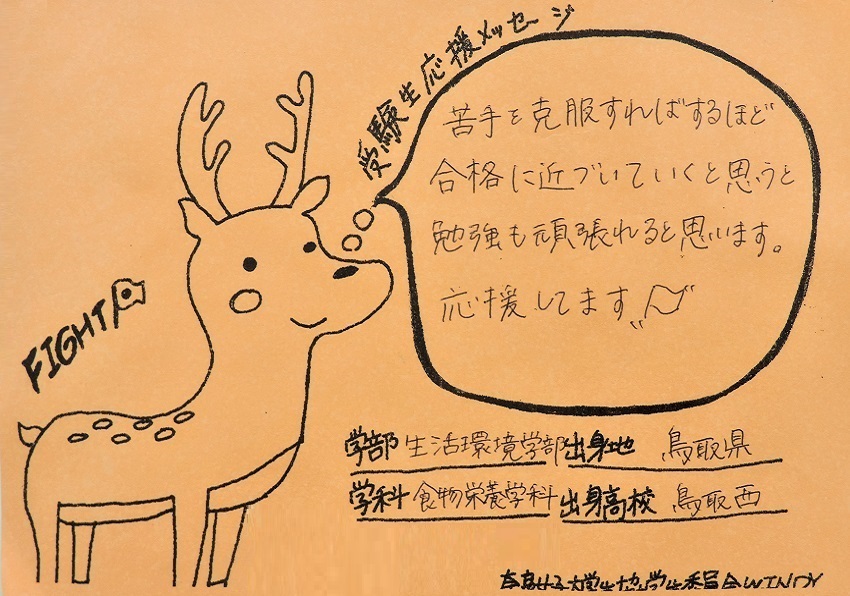 受験生応援メッセージ
苦手を克服すればするほど
合格に近づいていくと思うと
勉強も頑張れると思います。
応援してます
FIGHT
学部 生活環境学部 出身地 鳥取県
学科 食物栄養学科 出身高校 鳥取西
奈良女子大学生協学生委員会WINDY